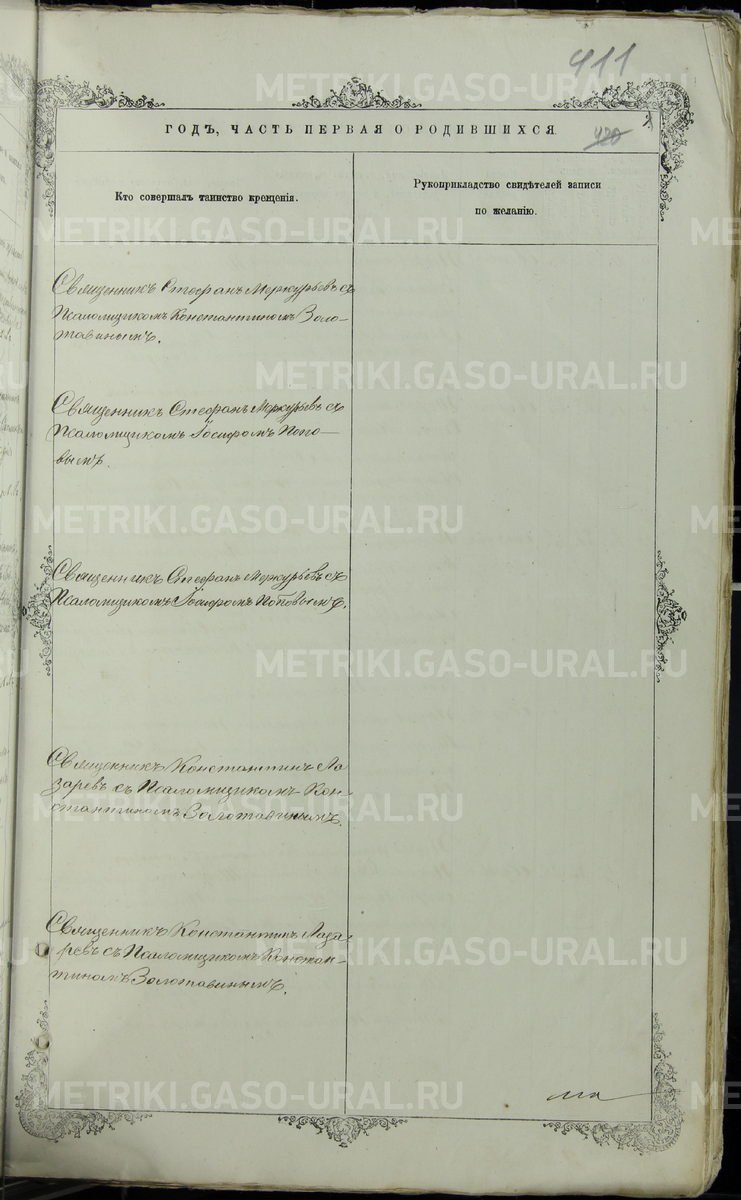 411
ГОДЪ, ЧАСТЬ ПЕРВАЯ О РОДИВШИХСЯ.
420
Кто совершалъ таинство крещенія.
Рукоприкладство свидѣтелей записи
по желанію.
Священникъ Стефанъ Меркурьевъ съ
Псаломщикомъ Константиномъ Золо-
тавинымъ.
Священникъ Стефанъ Меркурьевъ съ
Псаломщикомъ Іосифомъ Попо-
вымъ.
Священникъ Стефанъ Меркурьевъ съ
Псаломщикомъ Іосифомъ Поповымъ.
Священникъ Константинъ Ла
заревъ съ Псаломщикомъ Кон-
стантиномъ Золотавинымъ.
Священникъ Константинъ Лаза-
ревъ съ Псаломщикомъ Констан-
тиномъ Золотавинымъ.
METRIKI.GASO-URAL.RU